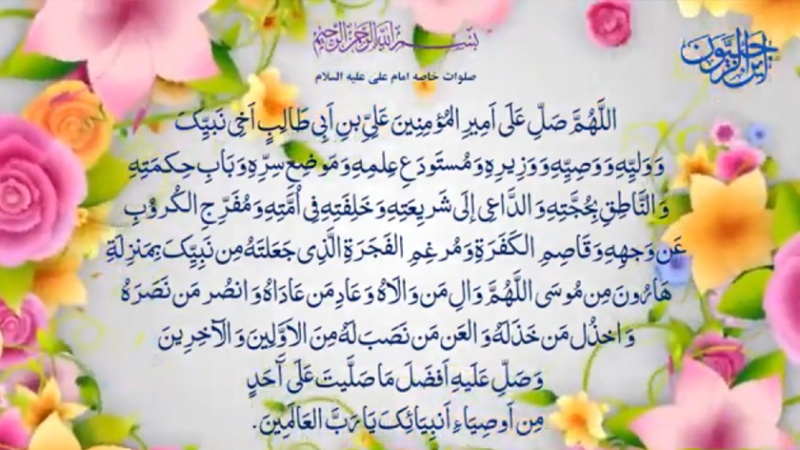 بسم الله الرحمن الرحیم
صلوات خاصه امام علی علیه السلام
اللَّهُمَّ صَلِّ عَلَى اَمِيرِ المُؤْمِنِينَ عَلِيِّ بنِ اَبِی طَالِبٍ اَخِی نَبِيِّکَ
وَ وَلِيِّهِ وَ وَصِيِّهِ وَ وَزِيرِهِ وَ مُستَودَعِ عِلمِهِ وَ مَوضِعِ سِرِّهِ وَ بَابِ حِکمَتِهِ
وَ النَّاطِقِ بِحُجَّتِهِ وَ الدَّاعِی إِلَى شَرِيعَتِهِ وَ خَلِفَتِهِ فِی اُمَّتِهِ وَ مُفَرِّجِ الکُرُوبِ
عَن وَجهِهِ وَ قَاصِمِ الکَفَرَةِ وَ مُرغِمِ الفَجَرَةِ الَّذِی جَعَلتَهُ مِن نَبِيِّکَ بِمَنزِلَةِ
هَارُونَ مِن مُوسَى اللَّهُمَّ وَالِ مَن وَالَاهُ وَ عَادِ مَن عَادَاهُ وَ انصُر مَن نَصَرَهُ
وَ اخذُل مَن خَذَلَهُ وَ العَن مَن نَصَبَ لَهُ مِنَ الاَوَّلِينَ وَ الآخِرِينَ
وَ صَلِّ عَلَيهِ اَفضَلَ مَا صَلَّيتَ عَلَى اَحَدٍ
مِن اَوصِيَاءِ اَنبِيَائِکَ يَا رَبَّ العَالَمِينَ.